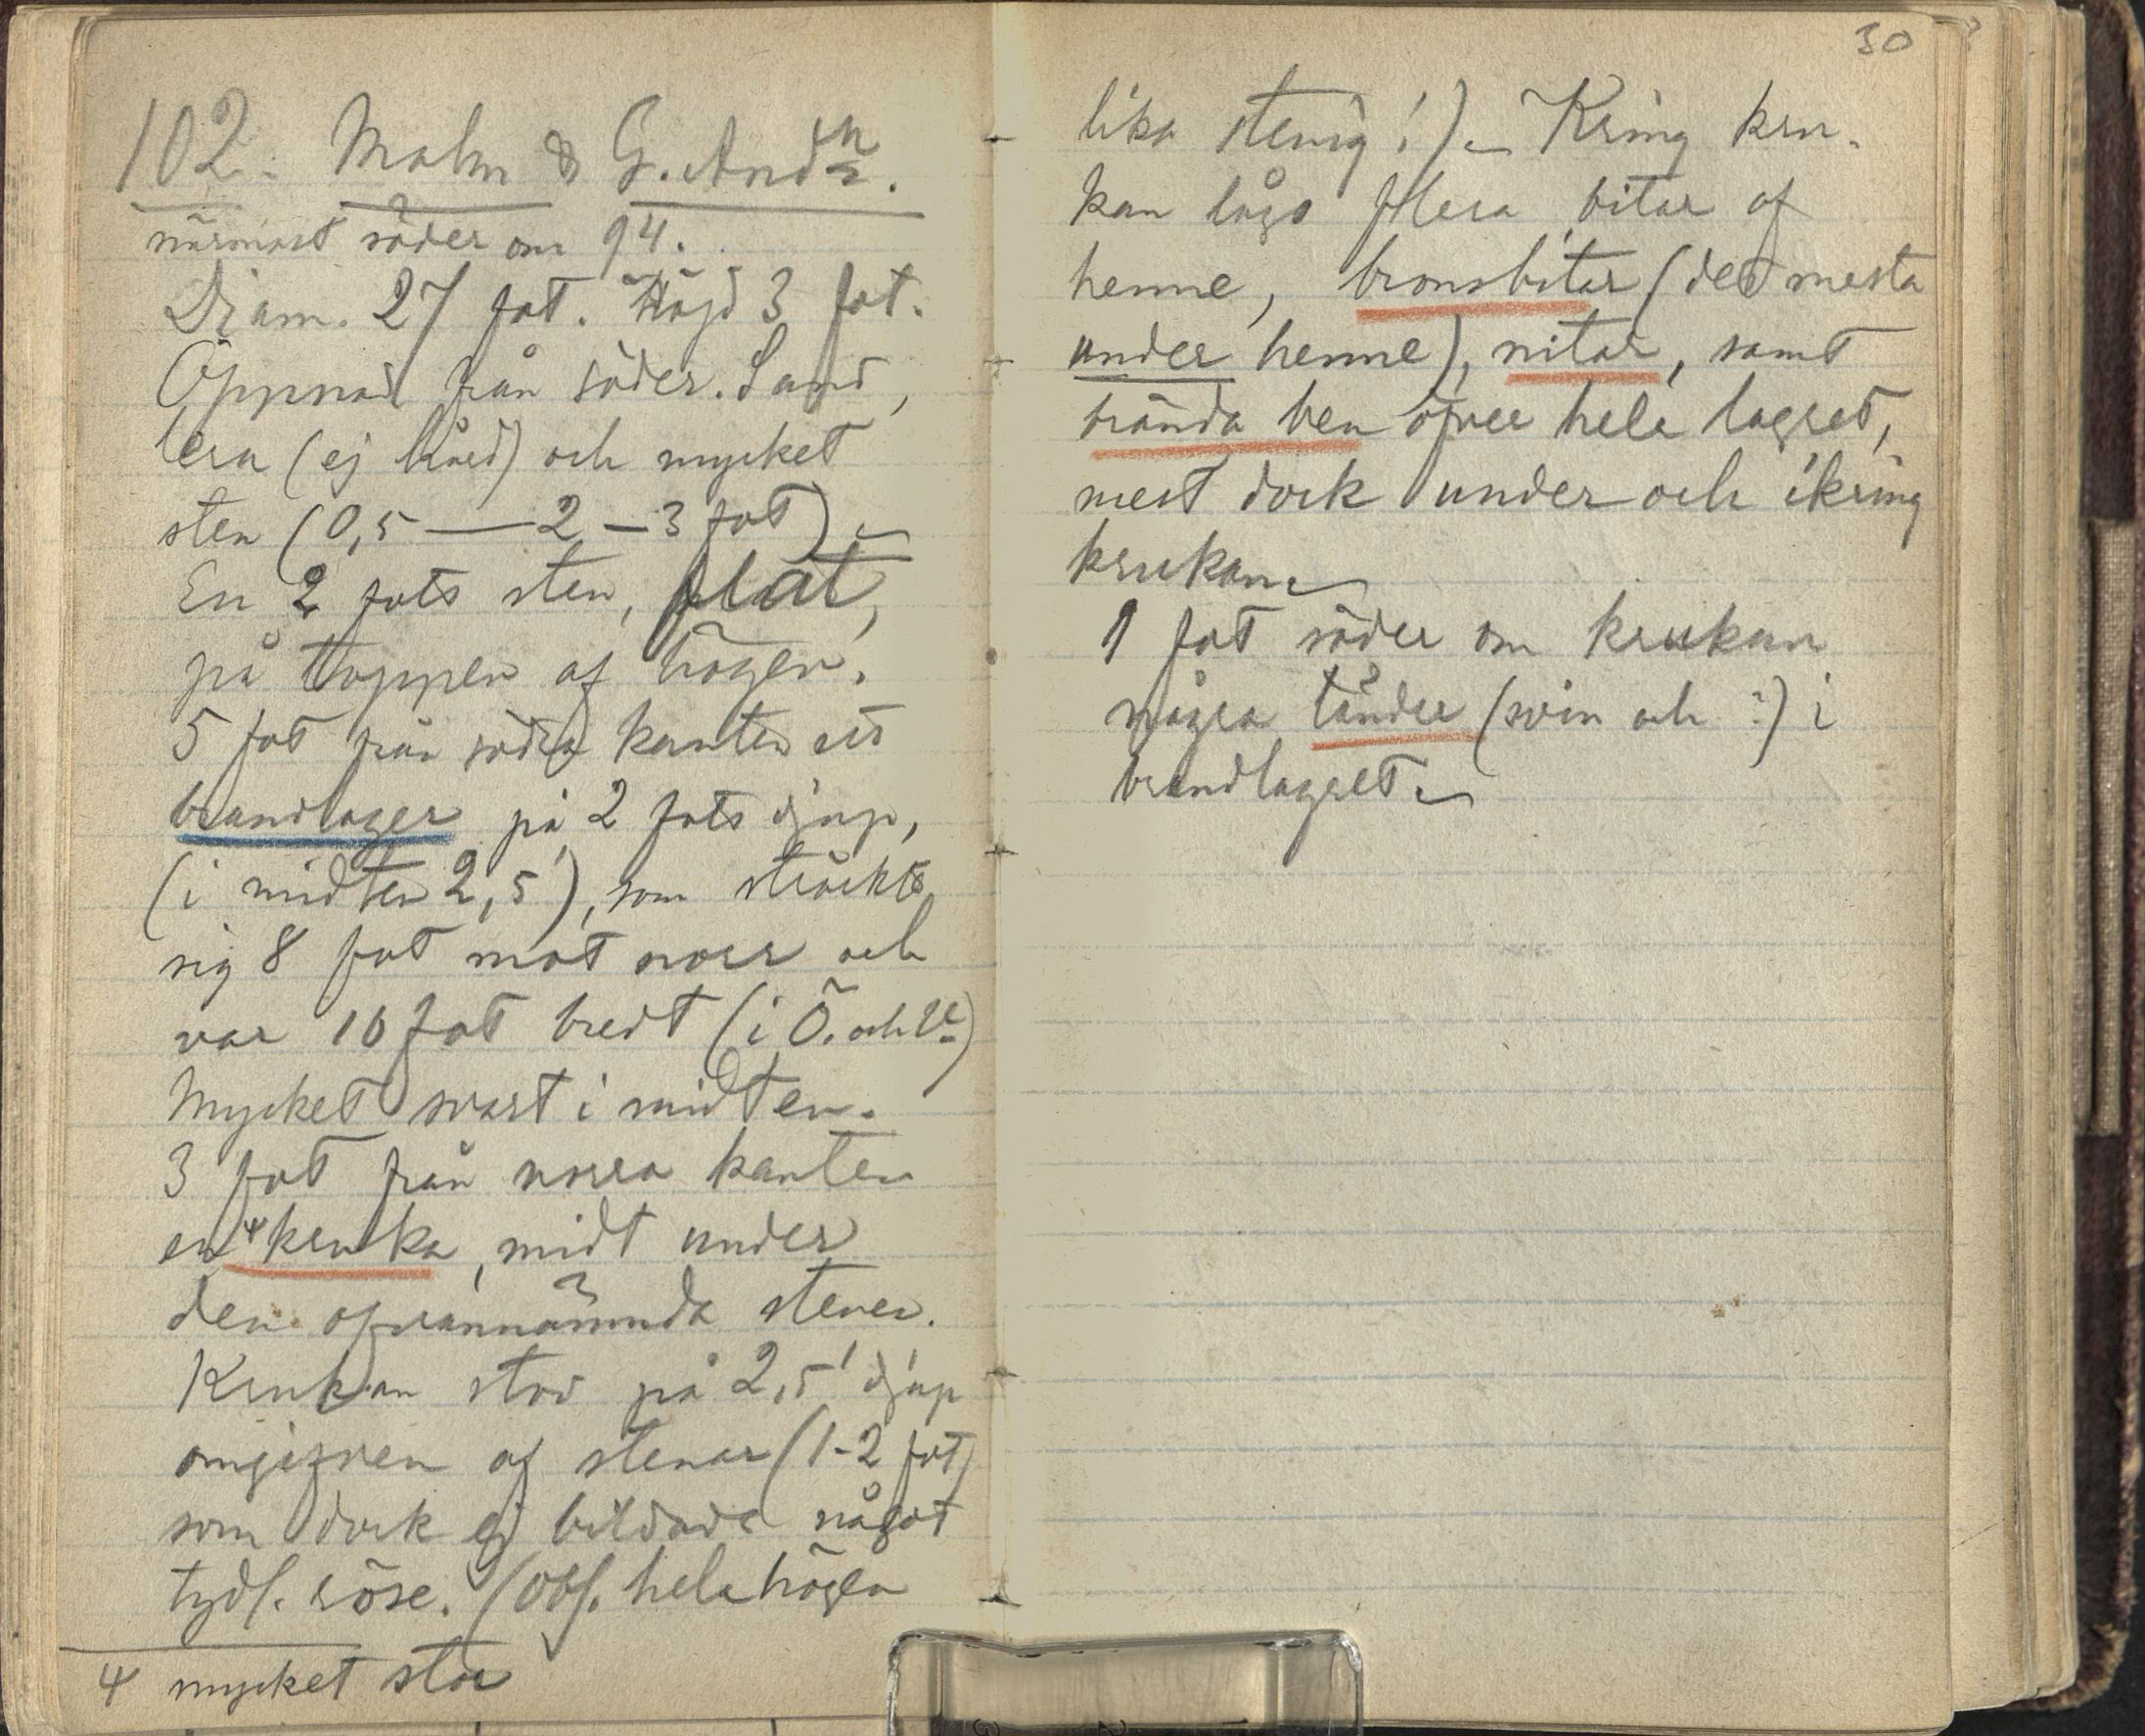 102. Malm & G. And:n.
närmast söder om 94.
Diam. 27 fot. Höjd 3 fot.
Öppnad från söder. Sand,
lera (ej hård) och mycket
sten (0,5 — 2 — 3 fot). –
En 2 fots sten, flat,
på toppen af högen.
5 fot från södra kanten ett
brandlager på 2 fots djup,
(i midten 2,5'), som sträckte
sig 8 fot mot norr och
var 10 fot bredt (i Ö. och V.)
Mycket svart i midten.
3 fot från norra kanten
en ⁺kruka, midt under
den ofvannämnda stenen.
Krukan stod på 2,5' djup
omgifven af stenar (1-2 fot)
som dock ej bildade något
tydl. röse. (Obs. hela högen
⁺ mycket stor
30
lika stenig!). – Kring kru-
kan lågo flera bitar af
henne, bronsbitar (det mesta
under henne), nitar, samt
brända ben öfver hela lagret,
mest dock under och ikring
krukan. –
1 fot söder om krukan
några tänder (svin och ?) i
brandlagret. –